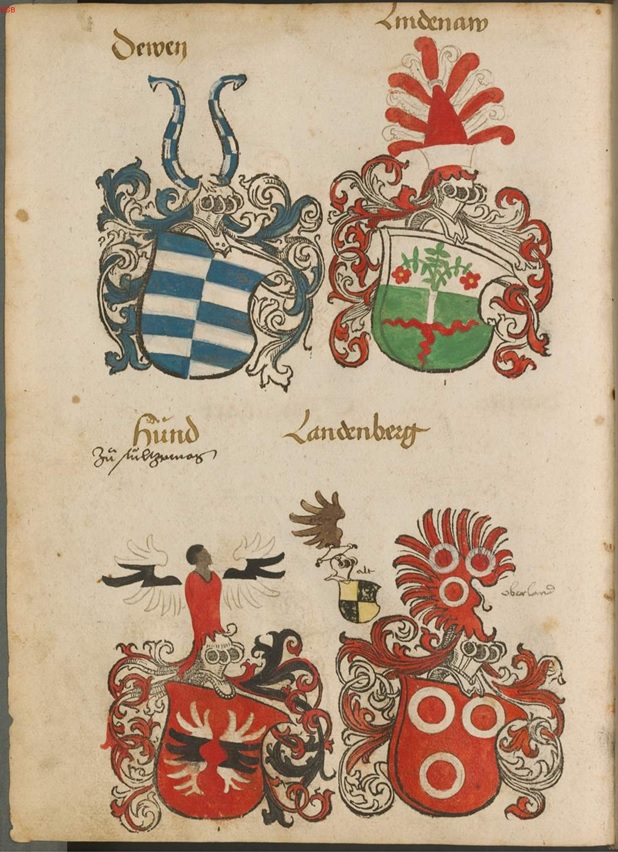 Dewen
Lindenaw
Hund
Zů
Landenberg
alt
oberland